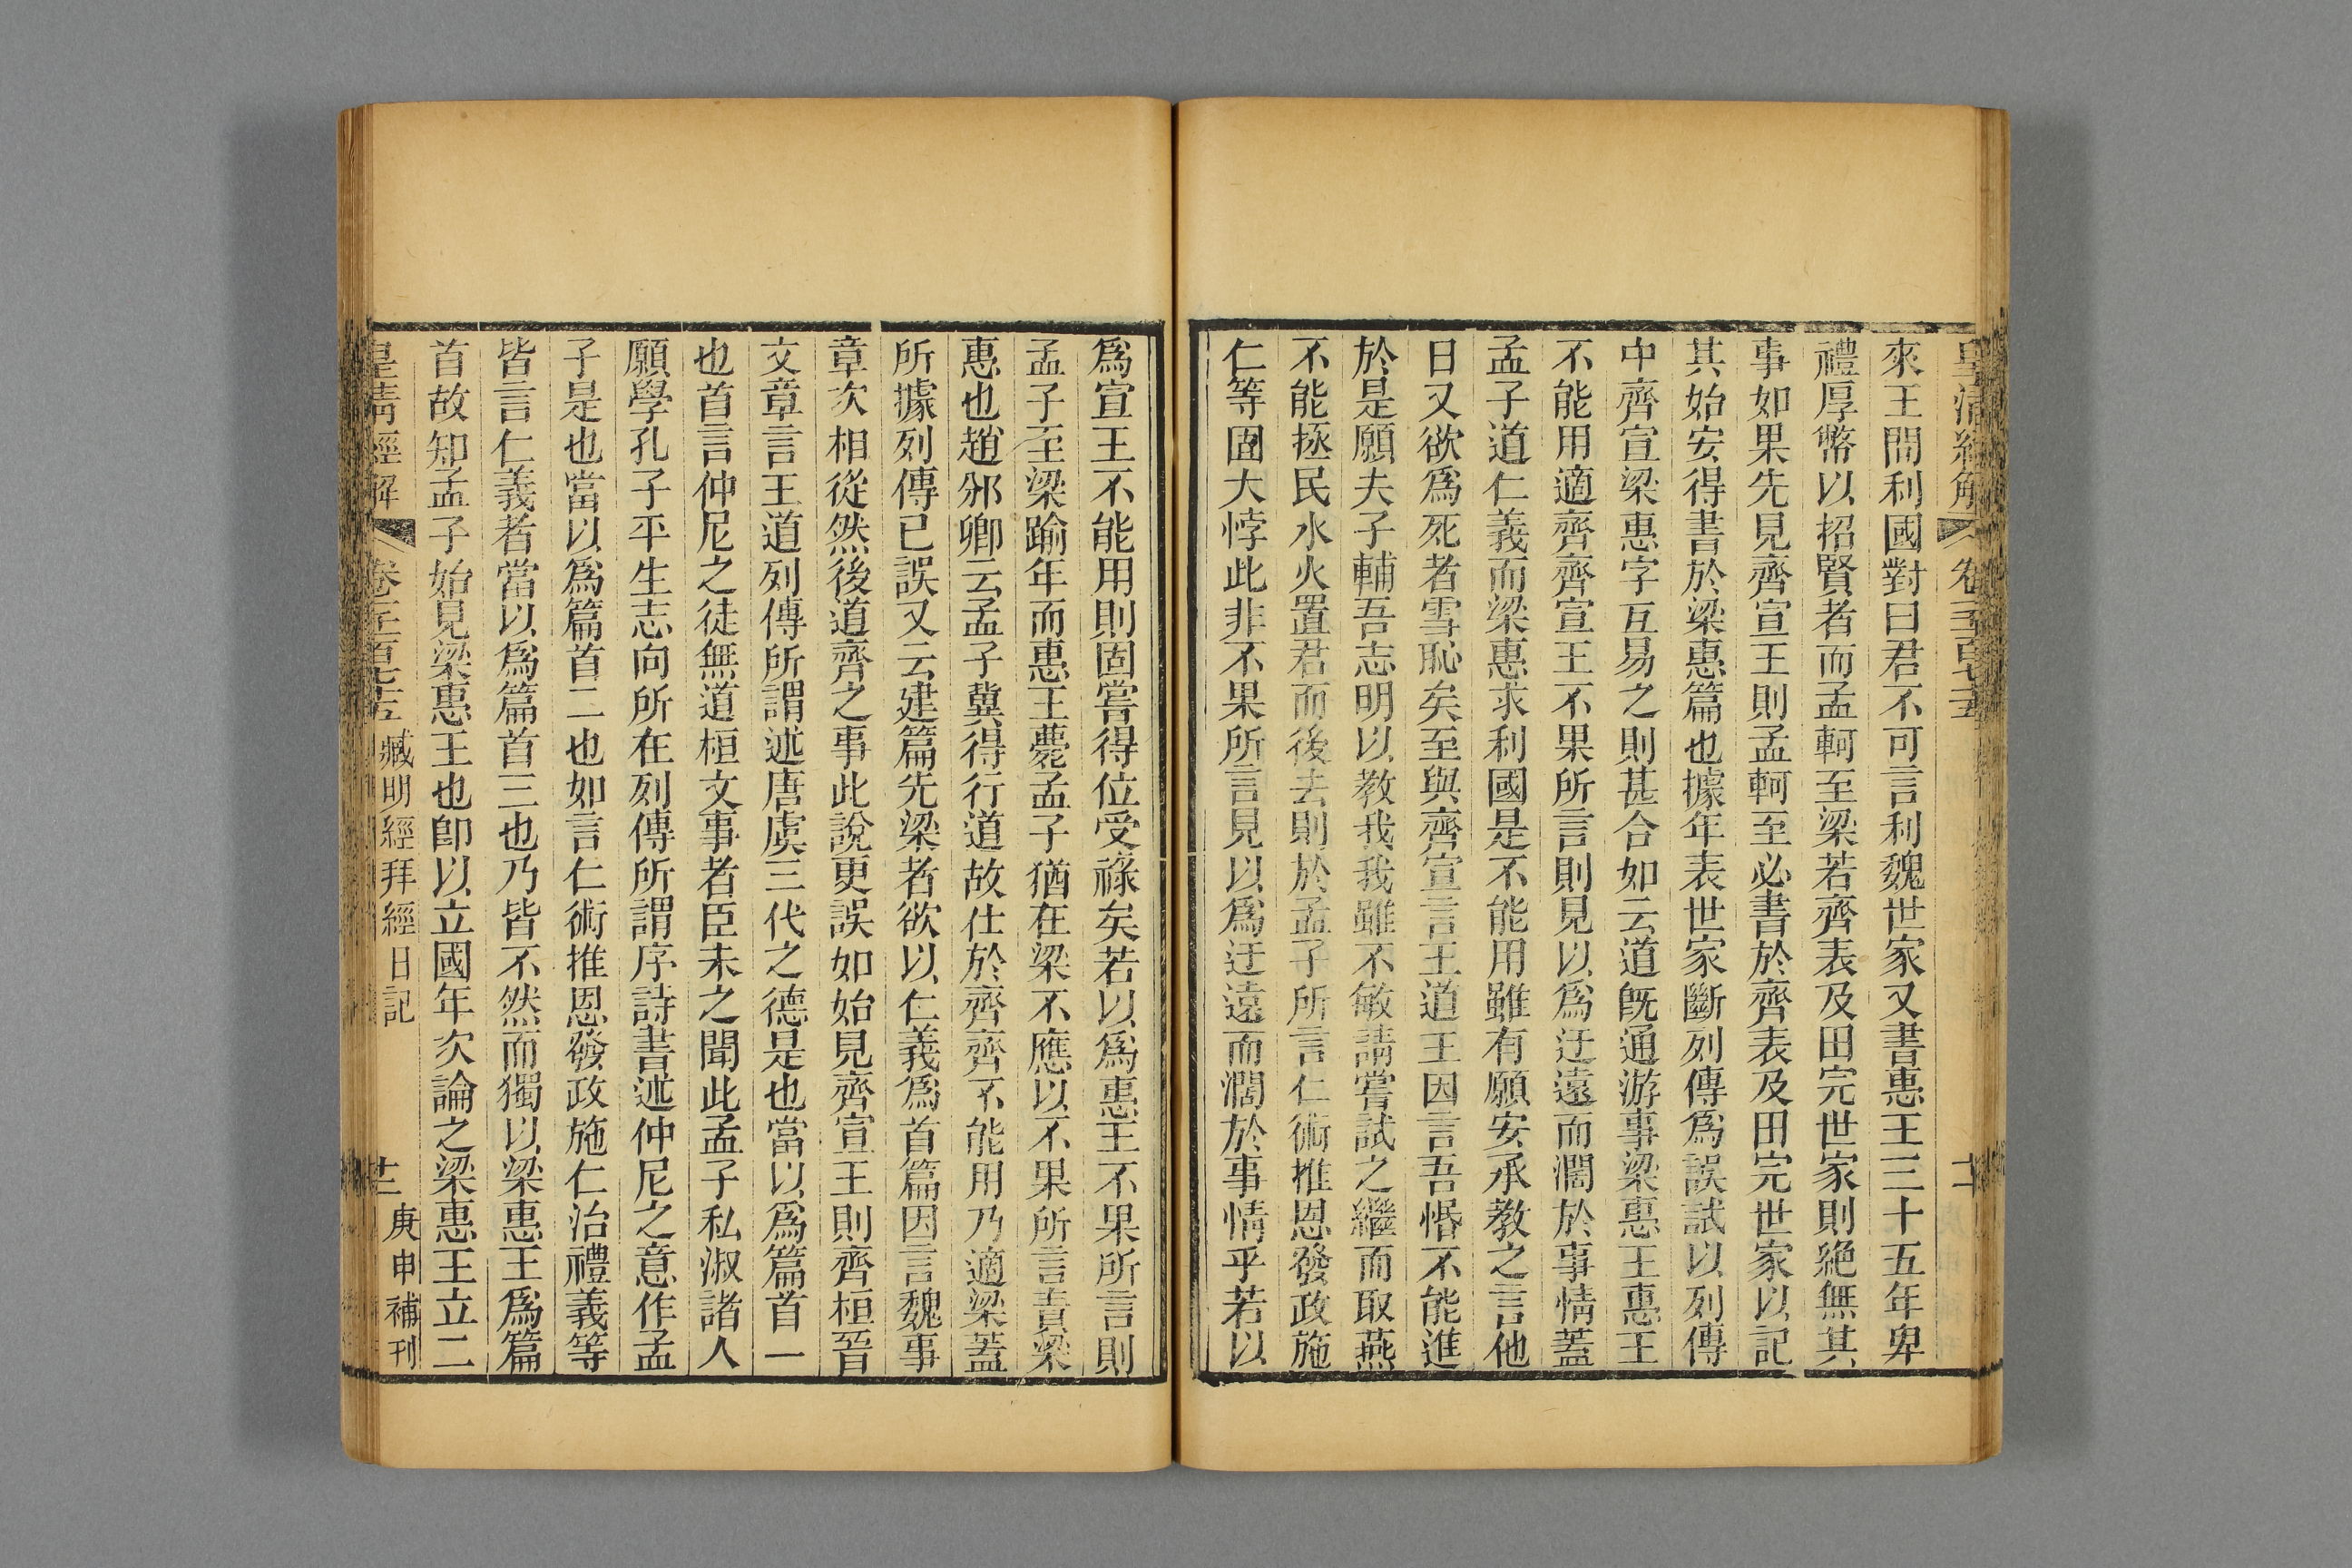 皇清經解 卷 十二
來王問利國對曰君不可言利魏世家又書惠王三十五年卑
禮厚幣以招賢者而孟軻至梁若齊表及田完世家則絕無其
事如果先見齊宣王則孟軻至必書於齊表及田完世家以記
其始安得書於梁惠篇也據年表世家斷列傳爲誤試以列傳
中齊宣梁惠字互易之則甚合如云道旣通游事梁惠王惠王
不能用適齊齊宣王不果所言則見以爲迂遠而濶於事情蓋
孟子道仁義而梁惠求利國是不能用雖有願安承教之言他
日又欲爲死者雪恥矣至與齊宣言王道王因言吾惛不能進
於是願夫子輔吾志明以教我我雖不敏請嘗試之繼而取燕
不能拯民水火置君而後去則於孟子所言仁術推恩發政施
仁等固大悖此非不果所言見以爲迂遠而濶於事情乎若以
爲宣王不能用則固嘗得位受祿矣若以爲惠王不果所言則
孟子至梁踰年而惠王薨孟子猶在梁不應以不果所言責梁
惠也趙邠卿云孟子冀得行道故仕於齊齊不能用乃適梁蓋
所據列傳已誤又云建篇先梁者欲以仁義爲首篇因言魏事
章次相從然後道齊之事此說更誤如始見齊宣王則齊桓晉
文章言王道列傳所謂述唐虞三代之德是也當以爲篇首一
也首言仲尼之徒無道桓文事者臣未之聞此孟子私淑諸人
願學孔子平生志向所在列傳所謂序詩書述仲尼之意作孟
子是也當以爲篇首二也如言仁術推恩發政施仁治禮義等
皆言仁義者當以爲篇首三也乃皆不然而獨以梁惠王爲篇
首故知孟子始見梁惠王也卽以立國年次論之梁惠王立二
皇清經解 卷 百七十五 臧明經拜經日記 十二 庚申補刊